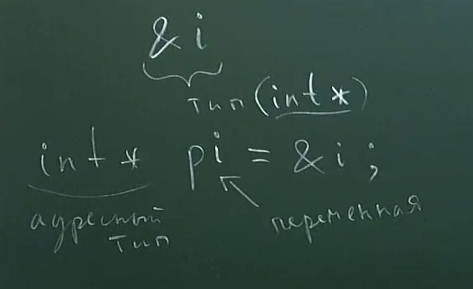 &i
тип (int *)
int * pi = &i;
адресный переменная
тип